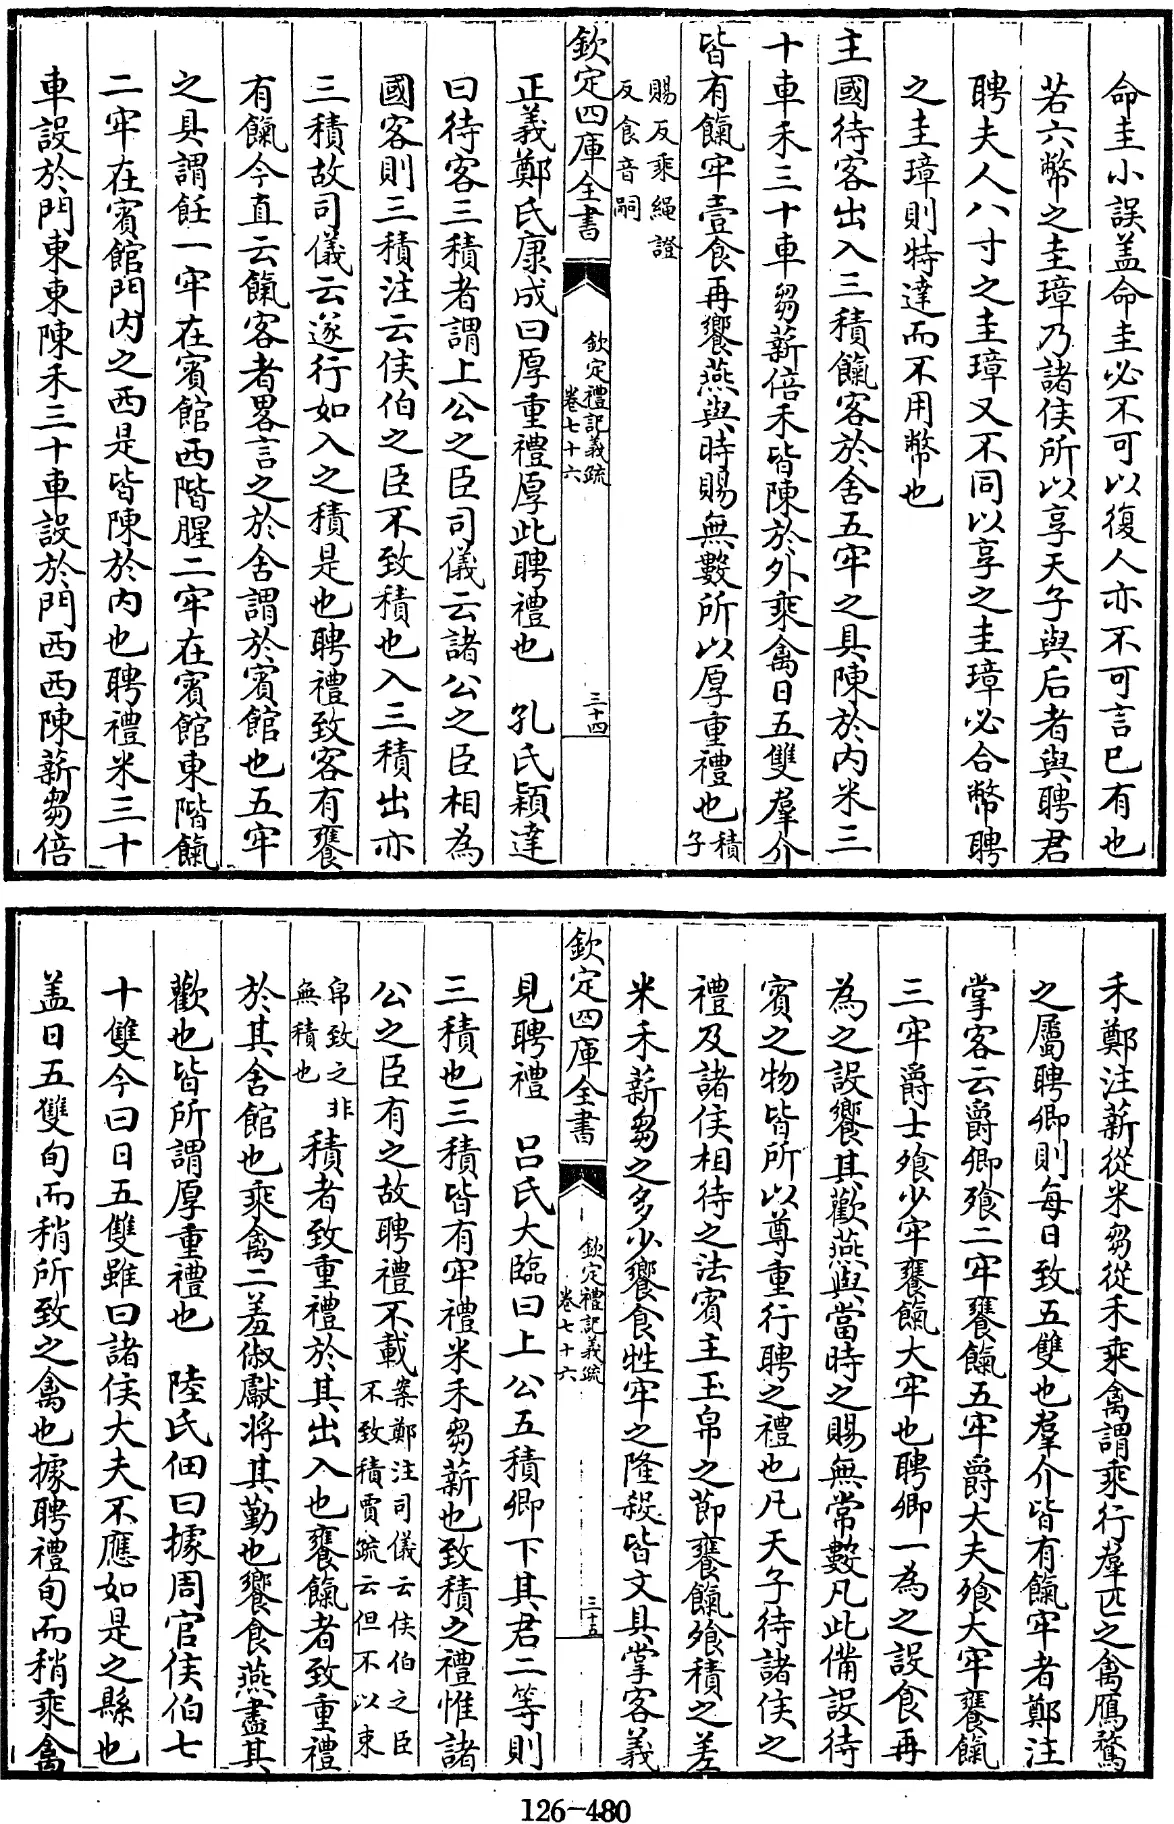 命圭小誤盖命圭必不可以復人亦不可言已有也
若六幣之圭璋乃諸侯所以享天子與后者與聘君
聘夫人八寸之圭璋又不同以享之圭璋必合幣聘
之圭璋則特達而不用幣也
主國待客出入三積餼客於舍五牢之具陳於内米三
十車禾三十車芻薪倍禾皆陳於外乘禽日五雙羣介
皆有餼牢壹食再饗燕與時賜無數所以厚重禮也積子
賜反乘繩證
反食音嗣
欽定四庫全書
欽定禮記義疏
卷七十六
三十四
正義鄭氏康成曰厚重禮厚此聘禮也 孔氏穎達
曰待客三積者謂上公之臣司儀云諸公之臣相為
國客則三積注云侯伯之臣不致積也入三積出亦
三積故司儀云遂行如入之積是也聘禮致客有饔
有餼今直云餼客者畧言之於舍謂於賓館也五牢
之具謂飪一牢在賓館西階腥二牢在賓館東階餼
二牢在賓館門内之西是皆陳於内也聘禮米三十
車設於門東東陳禾三十車設於門西西陳薪芻倍
禾鄭注薪從米芻從禾乘禽謂乘行羣匹之禽鴈鶩
之屬聘卿則每日致五雙也羣介皆有餼牢者鄭注
掌客云爵卿飱二牢饔餼五牢爵大夫飱大牢饔餼
三牢爵士飱少牢饔餼大牢也聘卿一為之設食再
為之設饗其歡燕與當時之賜無常數凡此備設待
賓之物皆所以尊重行聘之禮也凡天子待諸侯之
禮及諸侯相待之法賓主玉帛之節饔餼飱積之差
米禾薪芻之多少饗食牲牢之隆殺皆文具掌客義
欽定四庫全書
欽定禮記義疏
卷七十六
三十五
見聘禮 呂氏大臨曰上公五積卿下其君二等則
三積也三積皆有牢禮米禾芻薪也致積之禮惟諸
公之臣有之故聘禮不載案鄭注司儀云侯伯之臣不致積賈疏云但不以束
帛致之非無積也積者致重禮於其出入也饔餼者致重禮
於其舍館也乘禽二羞俶獻將其勤也饗食燕盡其
歡也皆所謂厚重禮也 陸氏佃曰據周官侯伯七
十雙今曰日五雙雖曰諸侯大夫不應如是之縣也
盖日五雙旬而稍所致之禽也據聘禮旬而稍乘禽
126-480